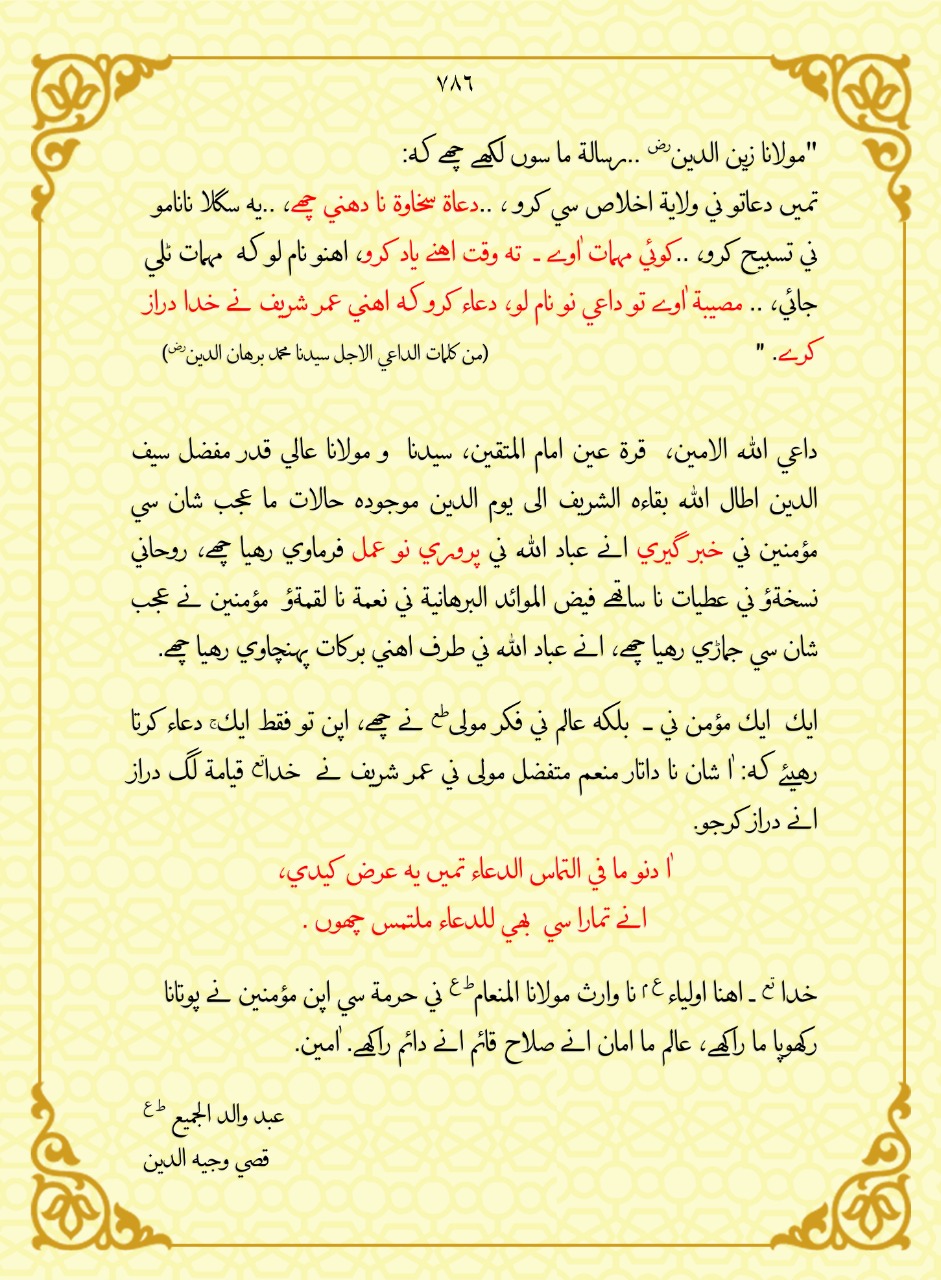 ٧٨٦
"مولانا زين الدين رض ..رسالة ما سوں لكھے چھے كہ:
تميں دعاتو ني ولاية اخلاص سي كرو ، ..دعاة سخاوة نا دھني چھے، ..يه سگلا نانامو
ني تسبيح كرو، ..كوئي مہمات اٰوے ـ ته وقت اھنے ياد كرو، اھنو نام لو كہ مہمات ٹلي
جائي، .. مصيبة اٰوے تو داعي نو نام لو، دعاء كرو كہ اھني عمر شريف نے خدا دراز
كرے. "
(من كلمات الداعي الاجل سيدنا محمد برهان الدين رض)
داعي الله الامين، قرة عين امام المتقين، سيدنا و مولانا عالي قدر مفضل سيف
الدين اطال الله بقاءه الشريف الى يوم الدين موجوده حالات ما عجب شان سي
مؤمنين ني خبر گيري انے عباد الله ني پروري نو عمل فرماوي رهيا چھے، روحاني
نسخةؤ ني عطيات نا ساتھے فيض الموائد البرهانية ني نعمة نا لقمةؤ مؤمنين نے عجب
شان سي جماڑي رهيا چھے، انے عباد الله ني طرف اهني بركات پهنچاوي رهيا چھے.
ايك ايك مؤمن ني ـ بلكه عالم ني فكر مولى طع نے چھے، اپن تو فقط ايك ج دعاء كرتا
رهيئے كہ: اٰ شان نا داتار منعم متفضل مولى ني عمر شريف نے خدا تع قيامة لگ دراز
انے دراز كرجو.
اٰ دنو ما في التماس الدعاء تميں يه عرض كيدي،
انے تمارا سي بھي للدعاء ملتمس چھوں .
خدا تع ـ اهنا اولياء ع م نا وارث مولانا المنعام ط ع ني حرمة سي اپن مؤمنين نے پوتانا
ركھوپا ما راكھے، عالم ما امان انے صلاح قائم انے دائم راكھے. اٰمين.
عبد والد الجميع ط ع
قصي وجيه الدين